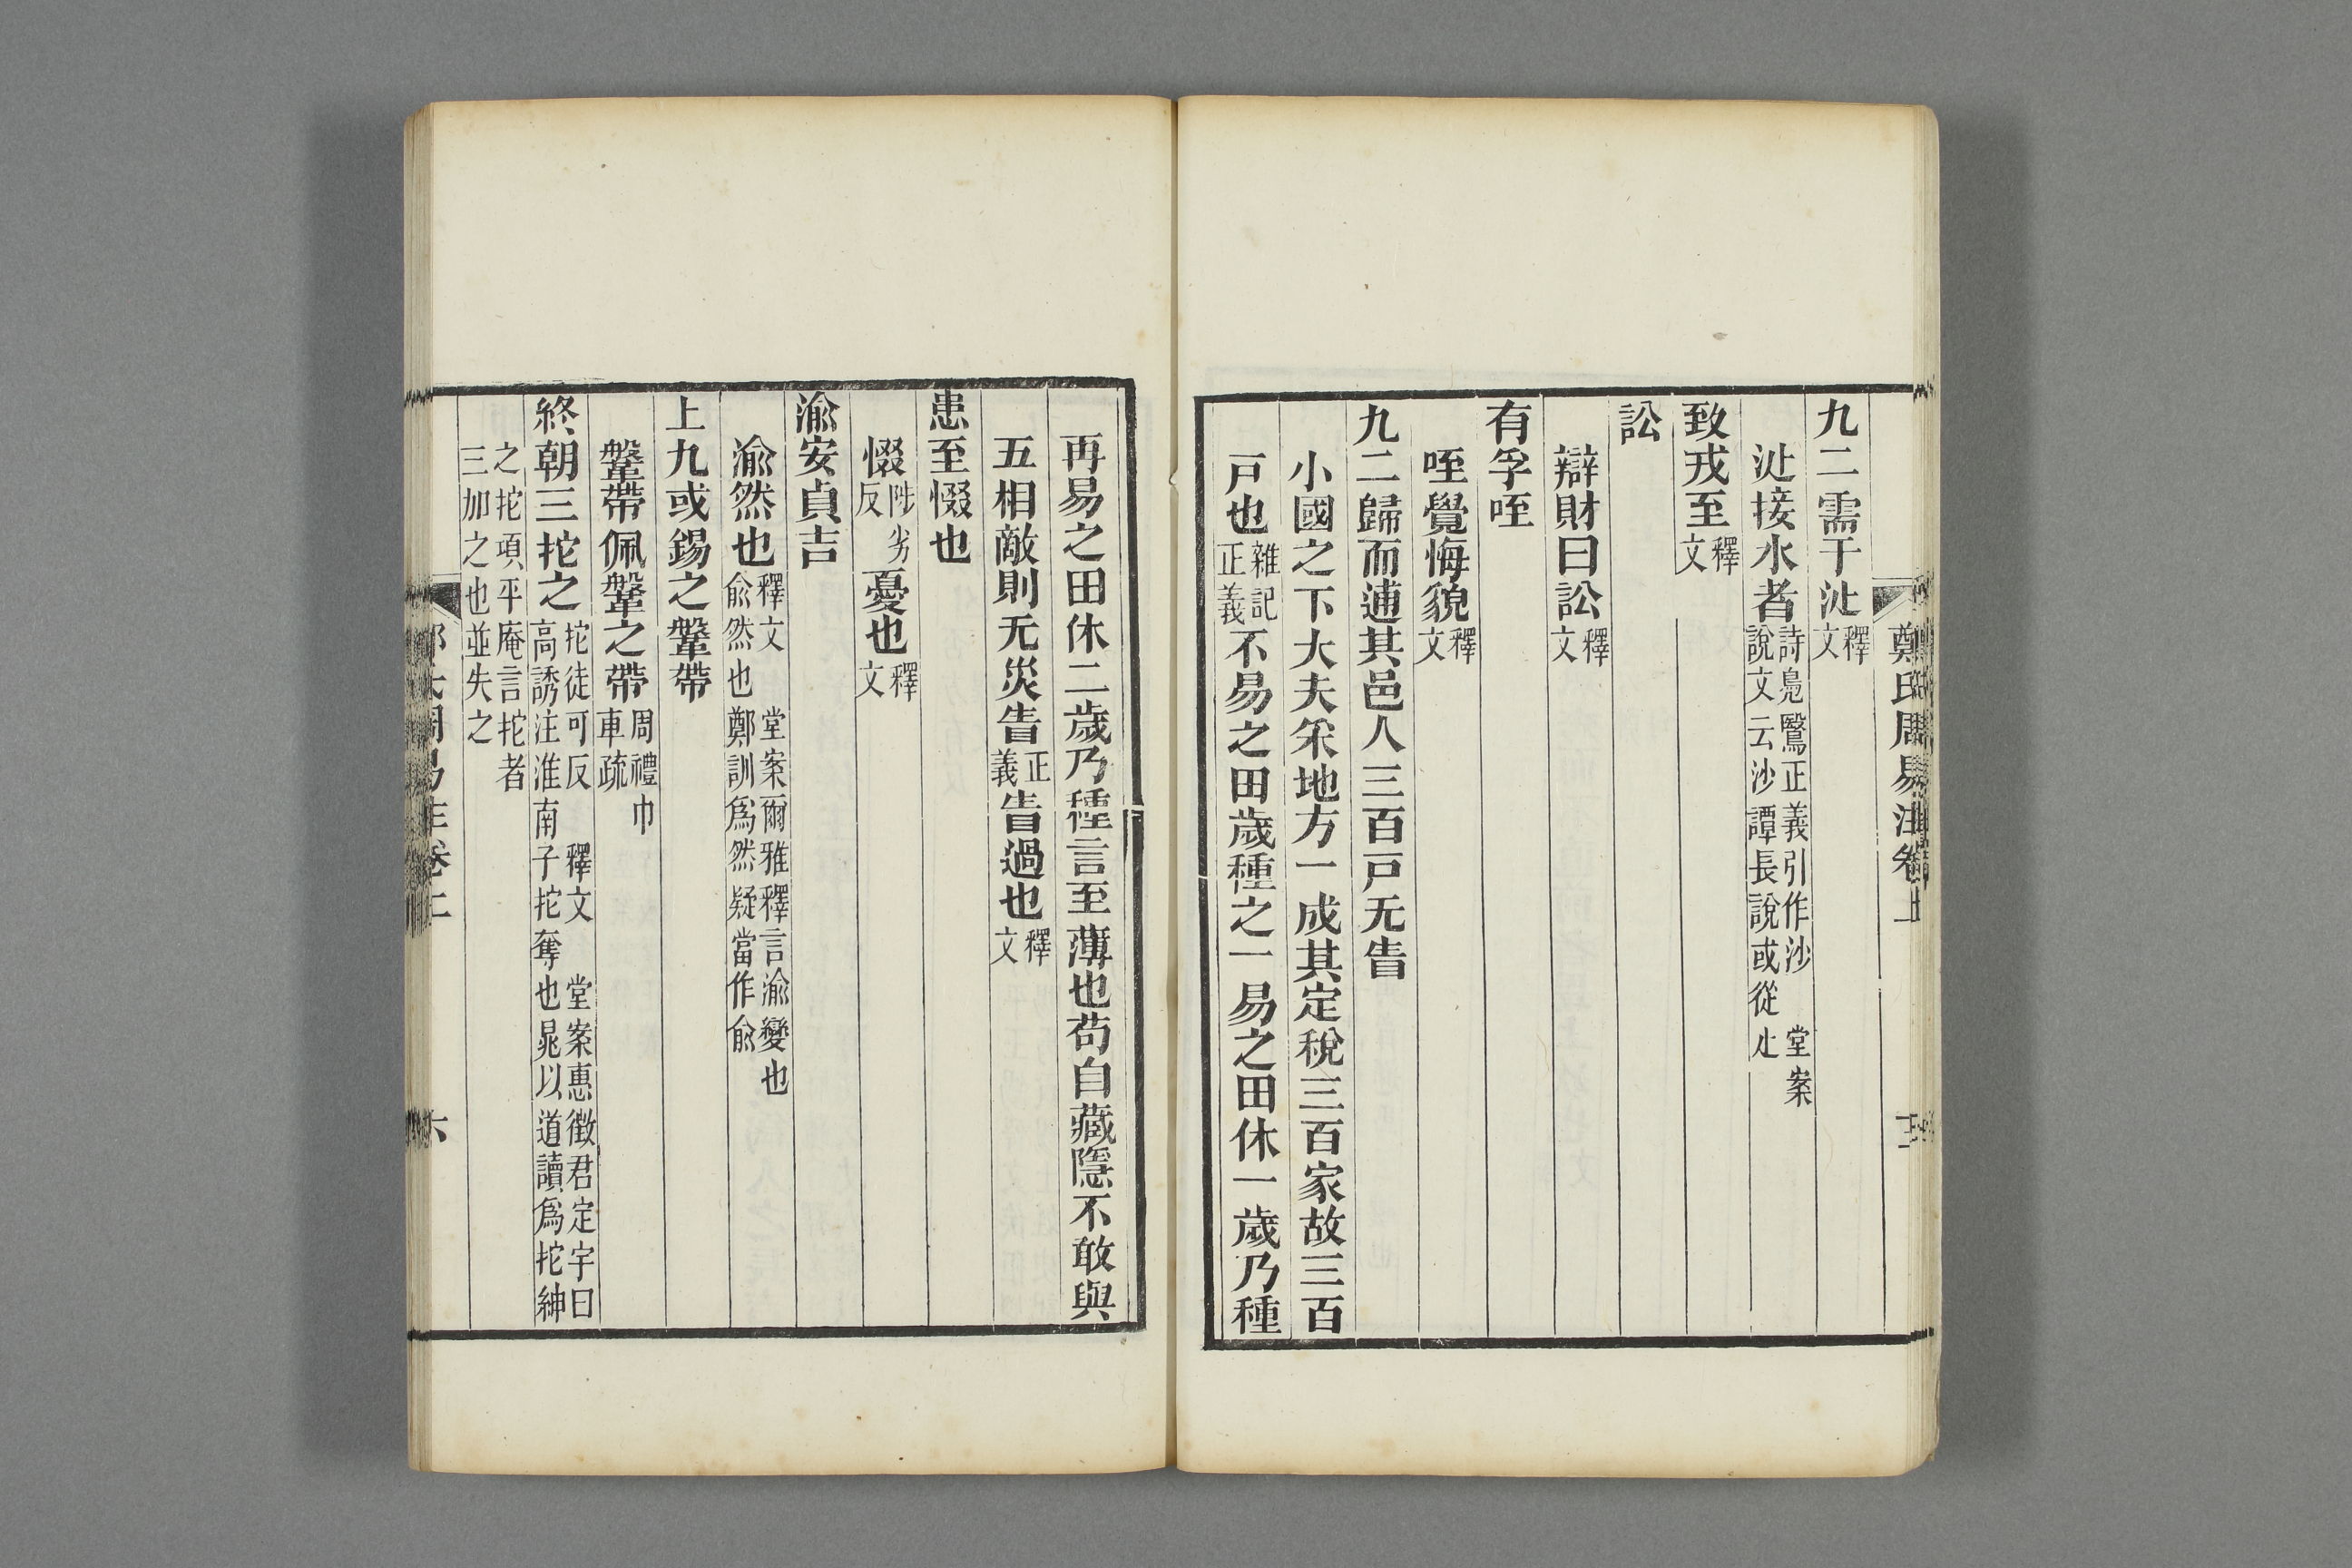 鄭氏周易注卷上
九二需于沚釋文
沚接水者詩鳧鷖正義引作沙 堂案說文云沙譚長說或從沚
致戎至釋文
訟
辯財曰訟釋文
有孚咥
咥覺悔貌釋文
九二歸而逋其邑人三百戸无眚
小國之下大夫采地方一成其定稅三百家故三百
戸也雜記正義不易之田歲種之一易之田休一歲乃種
再易之田休二歲乃種言至薄也苟自藏隱不敢與
五相敵則无災眚正義眚過也釋文
患至惙也
惙陟劣反憂也釋文
渝安貞吉
渝然也釋文 堂案爾雅釋言渝變也俞然也鄭訓爲然疑當作俞
上九或錫之鞶帶
鞶帶佩鞶之帶周禮巾車疏
終朝三拕之拕徒可反 釋文 堂案惠徵君定宇曰高誘注淮南子拕奪也晁以道讀爲拕紳
之拕項平庵言拕者三加之也並失之
鄭氏周易注卷上 六